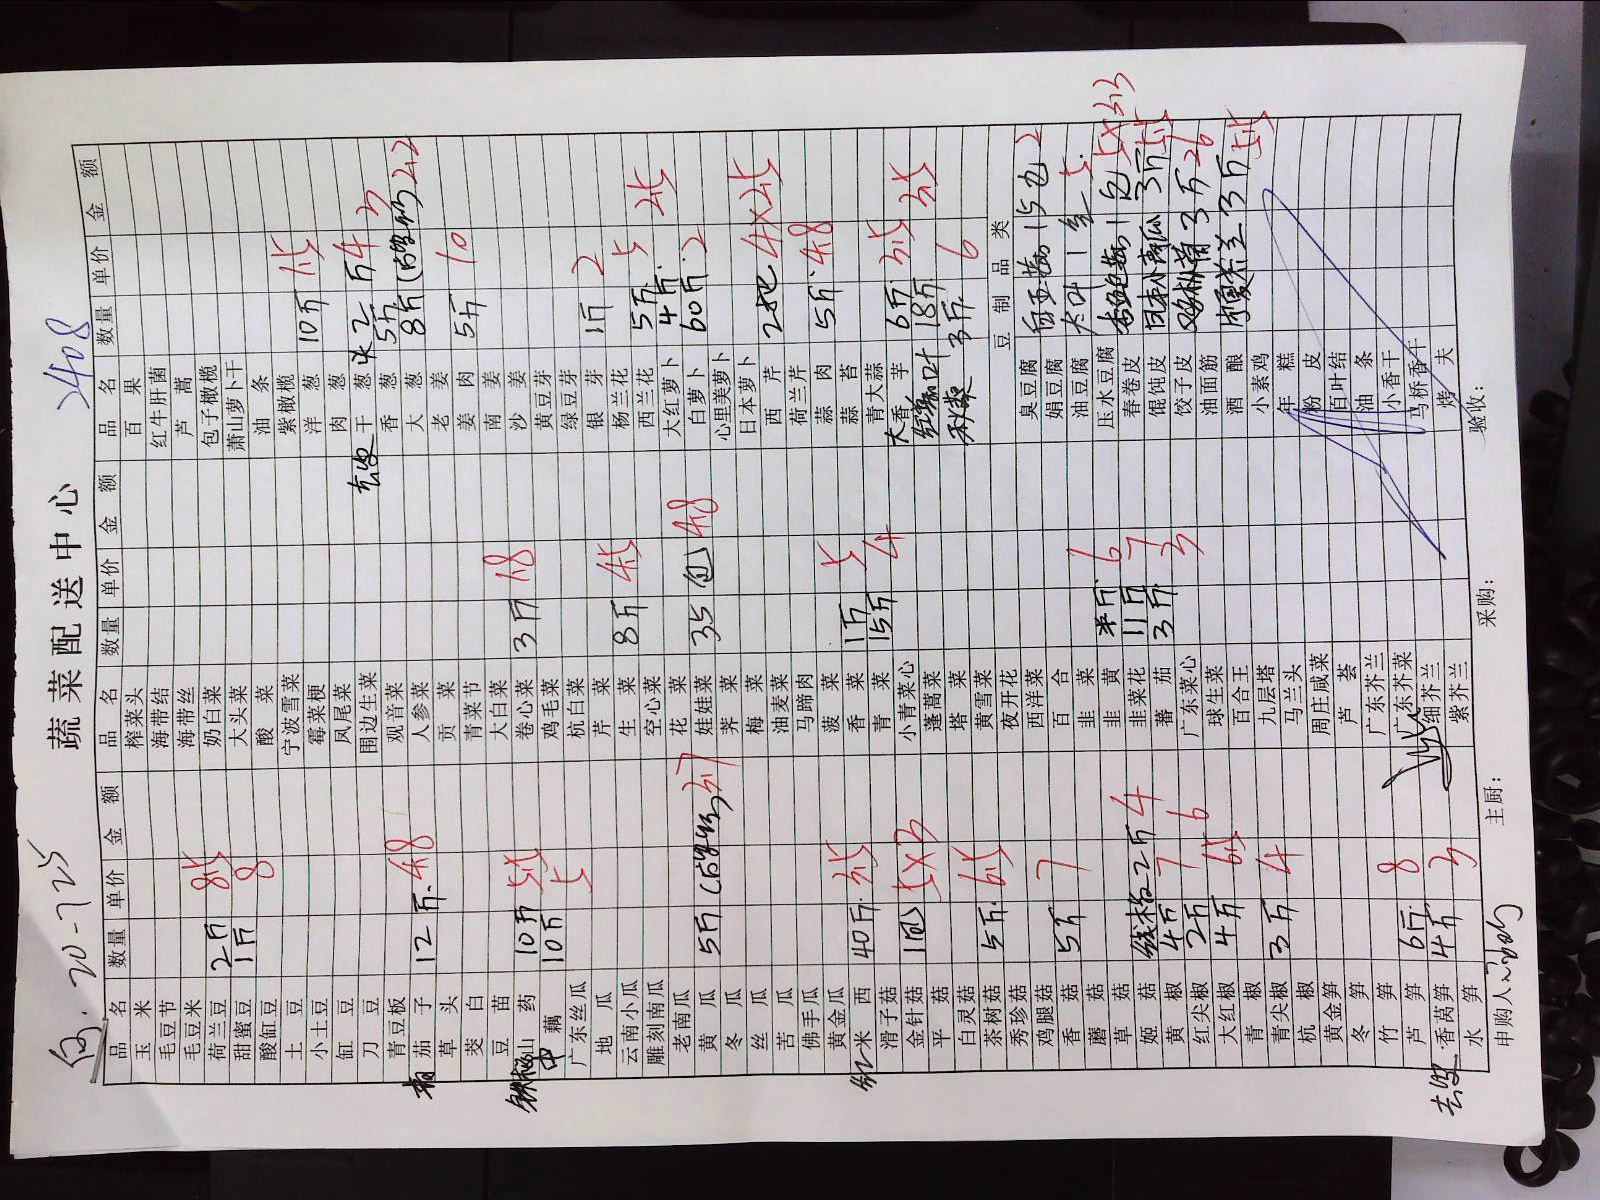 向. 20-7.25
蔬菜配送中心
2408
品名 数量 单价 金额
玉米
毛豆节
毛豆米
荷兰豆 2斤 8.5
甜蜜豆 1斤 8
酸缸豆
土豆
小土豆
缸豆
刀豆
青豆板
茄子 12斤. 4.8
草头
茭白
豆苗
铁棍山药 10斤 5.5
中藕 10斤 5
广东丝瓜
地瓜
云南小瓜
雕刻南瓜
老南瓜
黄瓜 5斤 3.7
冬瓜
丝瓜
苦瓜
佛手瓜
黄金瓜
米西 40斤. 3.5
滑子菇
金针菇 1包 5×3
平菇
白灵菇
茶树菇 5斤. 6.5
秀珍菇
鸡腿菇
香菇 5斤 7
蘑菇
草菇
姬菇 线椒2斤 4
黄椒 4斤 7
红尖椒 2斤 6
大红椒 4斤 6.5
青椒
青尖椒 3斤 4
杭椒
黄金笋
冬笋
竹笋
芦笋 6斤. 8
去皮香莴笋 4斤 3
水笋
品名 数量 单价 金额
榨菜头
海带结
海带丝
奶白菜
大头菜
酸菜
宁波雪菜
霉菜梗
凤尾菜
围边生菜
观音菜
人参菜
贡菜
青菜节
大白菜
卷心菜 3斤 1.8
鸡毛菜
杭白菜
芹菜
生菜 8斤 4.5
空心菜
花菜
娃娃菜 35包 4.8
荠菜
梅菜
油麦菜
马蹄肉
菠菜
香菜 1斤 5
青菜 15斤 4
小青菜心
蓬蒿菜
塔菜
黄雪菜
夜开花
西洋菜
百合
韭菜
韭黄 半斤. 6
韭菜花 11斤 7
蕃茄 3斤. 3
广东菜心
球生菜
百合王
九层塔
马兰头
周庄咸菜
芦荟
广东芥兰
广东芥菜
细芥兰
紫芥兰
品名 数量 单价 金额
百果
红牛肝菌
芦蒿
包子橄榄
萧山萝卜干
油条
紫橄榄
洋葱 10斤 1.5
肉葱
去皮干葱 2斤 4
香葱 5斤 3
大葱 8斤 2.2
老姜
姜肉 5斤 10
南姜
沙姜
黄豆芽
绿豆芽
银芽 1斤 2
杨兰花
西兰花 5斤. 5
大红萝卜 4斤. 2.5
白萝卜 60斤. 2
心里美萝卜
日本萝卜
西芹 2把 4×2.5
荷兰芹
蒜肉 5斤. 4.8
蒜苔
青大蒜
大香芋 6斤. 3.5
红薯叶 18斤 3.5
秋葵 3斤. 6
豆制品类
臭豆腐 白玉菇 15包 2
娟豆腐
油豆腐 大叶1 5.
压水豆腐
春卷皮 1包 5×3.3
馄饨皮 日本小南瓜 3斤 5.5
饺子皮 3斤 26
油面筋
酒酿 3斤 5.5
小素鸡
年糕
粉皮
百叶结
油条
小香干
马桥香干
烤夫
申购人: 主厨: 采购: 验收: